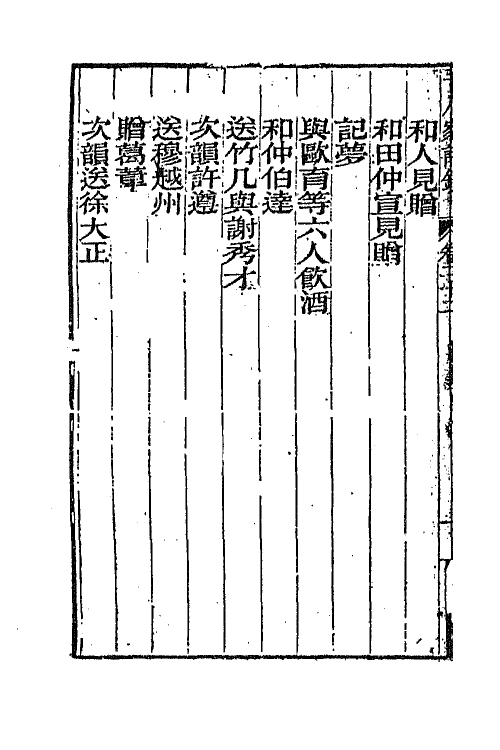 和人見贈
和田仲宣見贈
記夢
與歐育等六人飲酒
和仲伯達
送竹几與謝秀才
次韻許遵
送穆越州
贈葛葦
次韻送徐大正